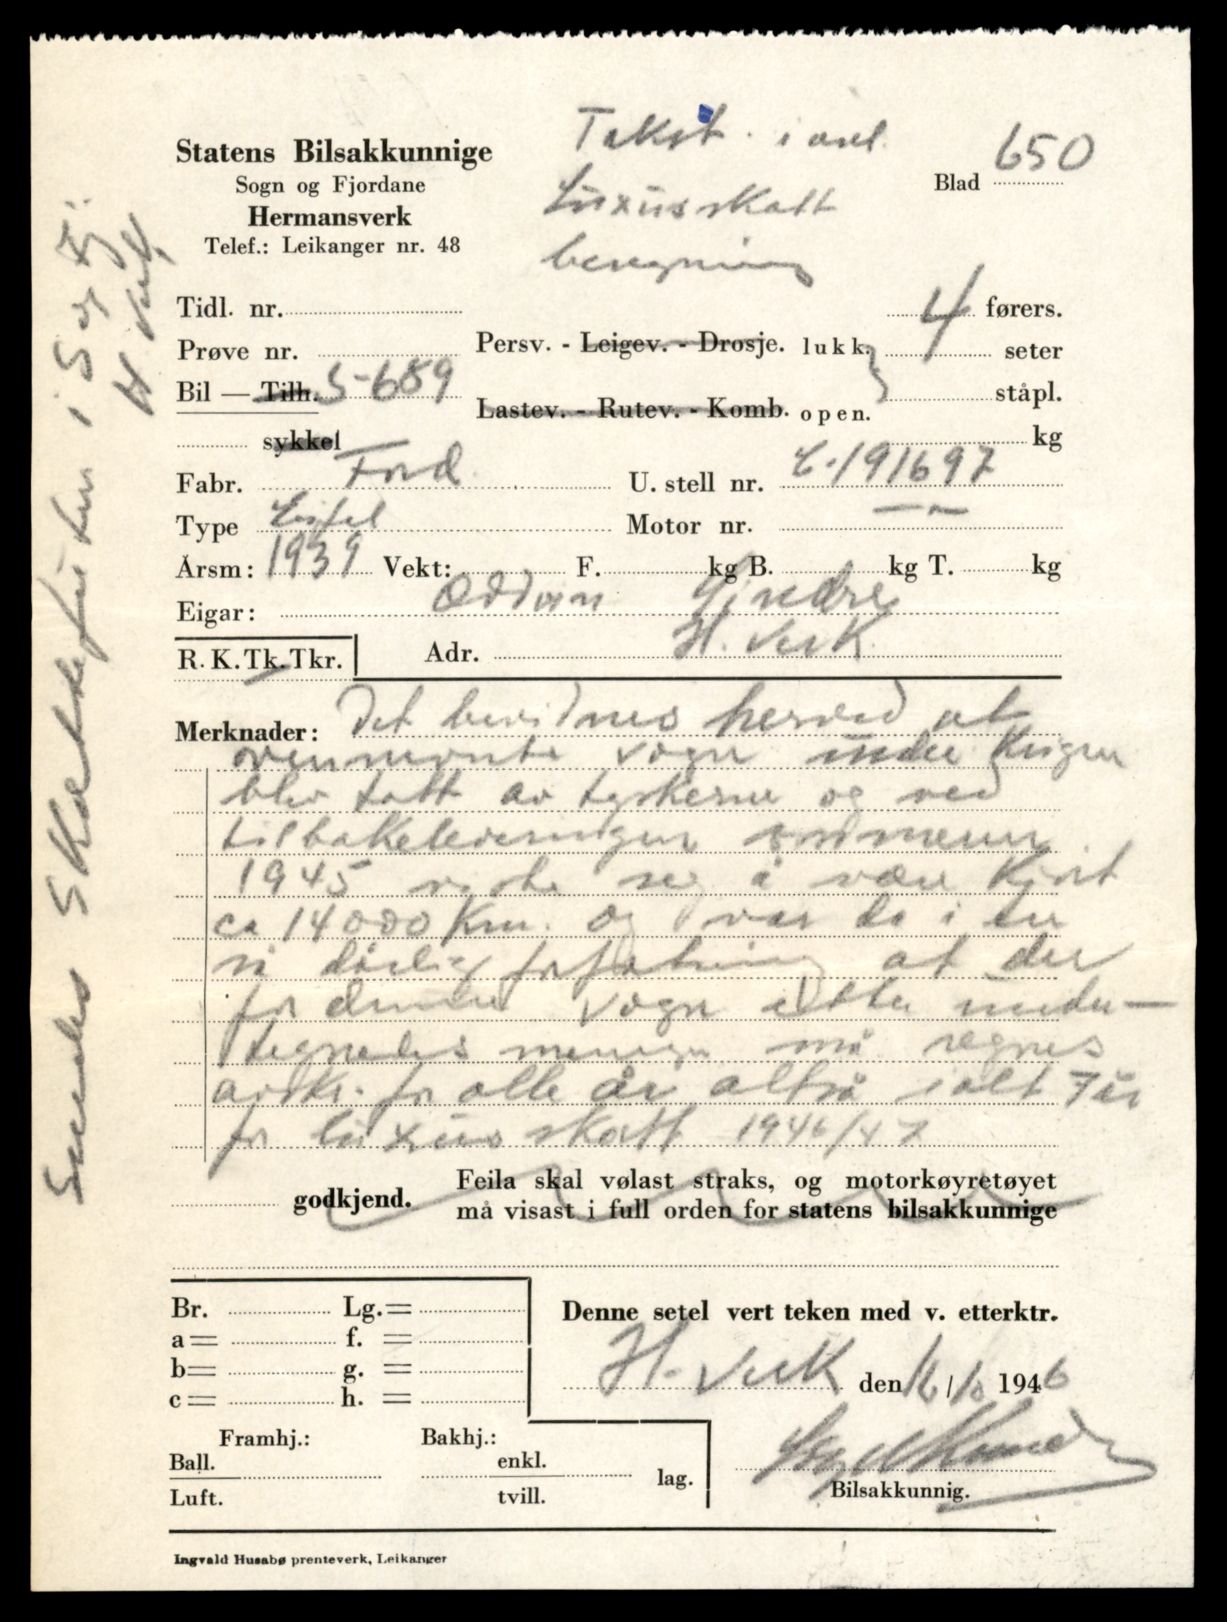 Statens Bilsakkunnige
Sogn og Fjordane
Hermansverk
Telef.: Leikanger nr. 48
Takst i anl.
Luxusskatt
beregning
Blad 650
Tidl. nr.
Prøve nr.
Bil — Tilh. S-689
sykkel
Persv. - Leigev. - Drosje. lukk.
Lastev. - Rutev. - Komb. open.
4 førers.
seter
ståpl.
kg
Fabr. Ford
U. stell nr. C.191697
Type Eifel
Motor nr. — " —
Årsm: 1939 Vekt: F. kg B. kg T. kg
Eigar: Oddvin Sindre
R. K. Tk. Tkr.
Adr. H. Verk.
Merknader: Det bevidnes herved at
ovennevnte vogn under krigen
blev tatt av tyskerne og ved
tilbakeleveringen sommeren
1945 viste seg å være kjørt
ca 14000 km. og var da i en
så dårlig forfatning at der
for denne vogn etter under-
tegnedes mening må regnes
avskr. for alle år altså ialt 7 år
for luxusskatt 1946/47
godkjend.
Feila skal vølast straks, og motorkøyretøyet
må visast i full orden for statens bilsakkunnige
Br. Lg.=
a= f. =
b= g. =
c= h. =
Denne setel vert teken med v. etterktr.
H. Verk den 16/10 1946
Framhj.: Bakhj.:
Ball. enkl.
lag.
Luft. tvill.
Bilsakkunnig.
Ingvald Husabø prenteverk, Leikanger
Sendes Skattefuten i S og Fj.
H. Verk